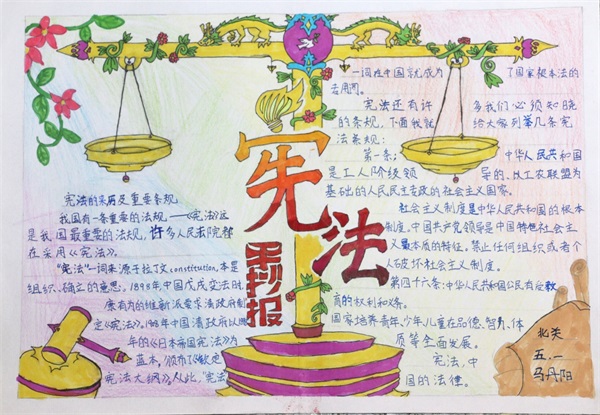 宪法
手抄报
宪法的来历及重要条规
我国有一条重要的法规,——《宪法》这
是我国最重要的法规,许多人民法院都
在采用《宪法》。
"宪法"一词来源于拉丁文constitution,本是
组织、确立的意思。1898年中国戊戌变法时,
康有为的维新派要求清政府制
定《宪法》,1908年中国清政府以明
年的《日本帝国宪法》为
蓝本,颁布了《钦定
宪法大纲》。从此,"宪法"
一词在中国就成为了国家根本法的
专用词。
宪法还有许多我们必须知晓
的条规,下面我就给大家列举几条宪
法条规:
第一条:中华人民共和国
是工人阶级领导的、以工农联盟为
基础的人民民主专政的社会主义国家。
社会主义制度是中华人民共和国的根本
制度。中国共产党领导是中国特色社会主
义最本质的特征。禁止任何组织或者个
人破坏社会主义制度。
第四十六条:中华人民共和国公民有受教
育的权利和义务。
国家培养青年、少年、儿童在品德、智力、体
质等全面发展。
宪法,中
国的法律。
北关
五.一
马丹阳